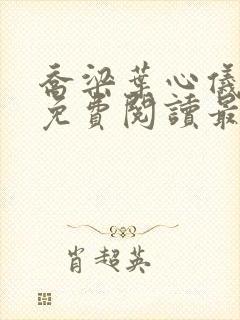 喬梁葉心儀
免費閱讀最
肖超英